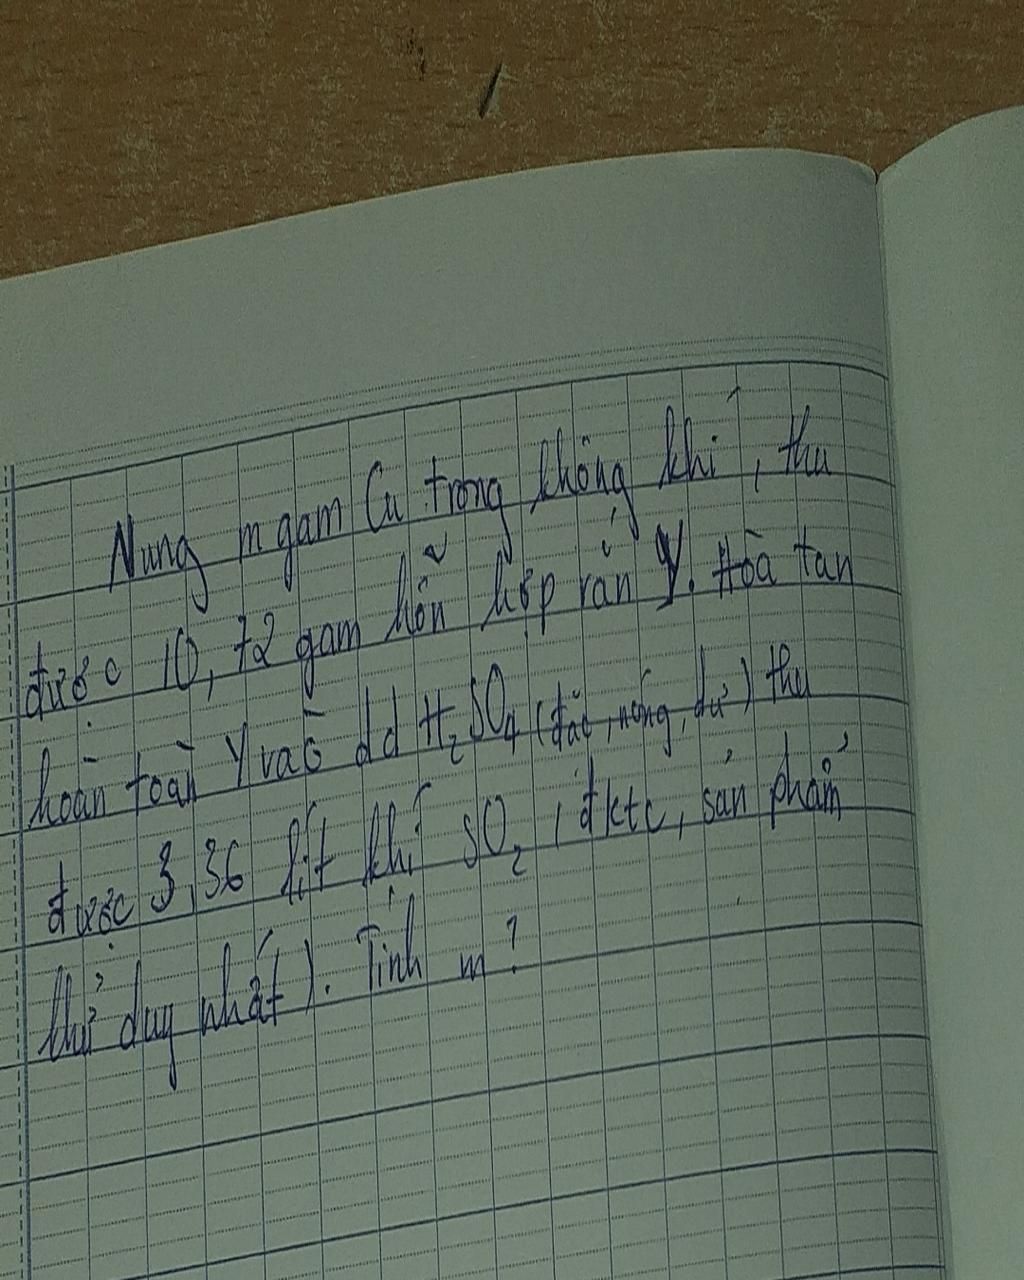 Nung m gam Cu trong không khí, thu
được 10,72 gam hỗn hợp rắn Y. Hoà tan
hoàn toàn Y vào dd H₂SO₄ (đặc, nóng, dư) thu
được 3,36 lít khí SO₂ (đktc, sản phẩm
khử duy nhất). Tính m?